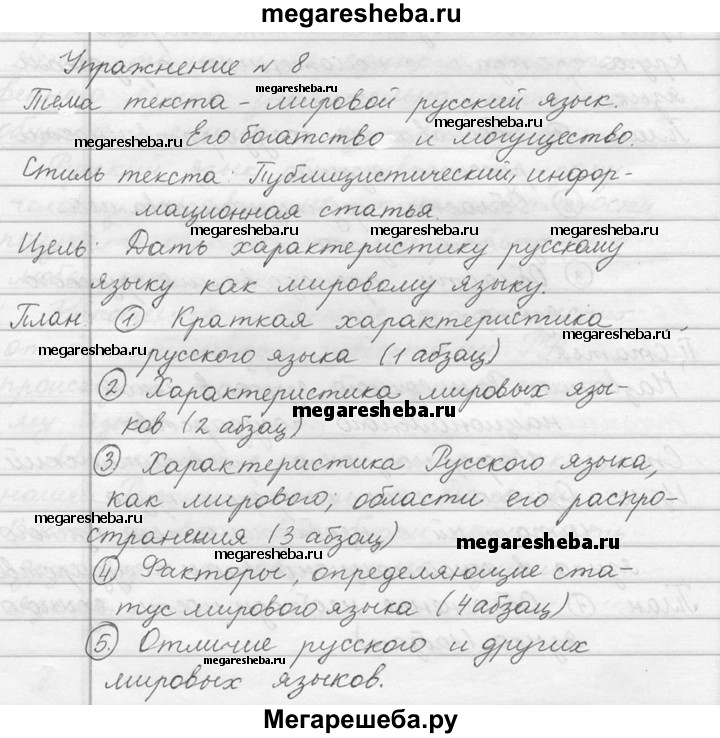 megaresheba.ru
Упражнение № 8
megaresheba.ru
Тема текста - мировой русский язык.
megaresheba.ru
megaresheba.ru Его богатство и могущество.
Стиль текста: Публицистический, инфор-
мационная статья.
megaresheba.ru
Цель: Дать характеристику русскому
языку как мировому языку.
План: 1. Краткая характеристика
megaresheba.ru
megaresheba.ru
русского языка (1 абзац)
2 Характеристика мировых язы-
megaresheba.ru
ков (2 абзац)
3 Характеристика Русского языка,
как мирового; области его распро-
megaresheba.ru
странения (3 абзац)
megaresheba.ru
megaresheba.ru
4 Факторы, определяющие ста-
тус мирового языка (4 абзац)
5. Отличие русского и других
megaresheba.ru
мировых языков.
Мегарешеба.ру